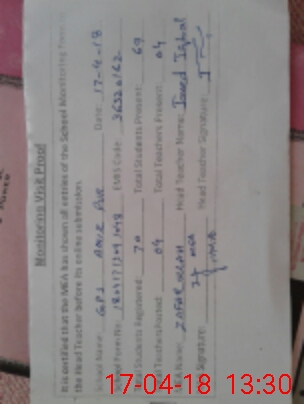 Monitoring Visit Proof
It is certified that the MEA has shown all entries of the School Monitoring Form to
the Head Teacher before its online submission.
School Name: GPS AMIR PUR Date: 17-4-18
School Form No: EMIS Code:
Total Students Registered: 70 Total Students Present: 69
Total Teachers Posted: 04 Total Teachers Present: 04
MEA Name: ZAFAR ULLAH Head Teacher Name: Javed Iqbal
Signature: Head Teacher Signature:
17-04-18 13:30